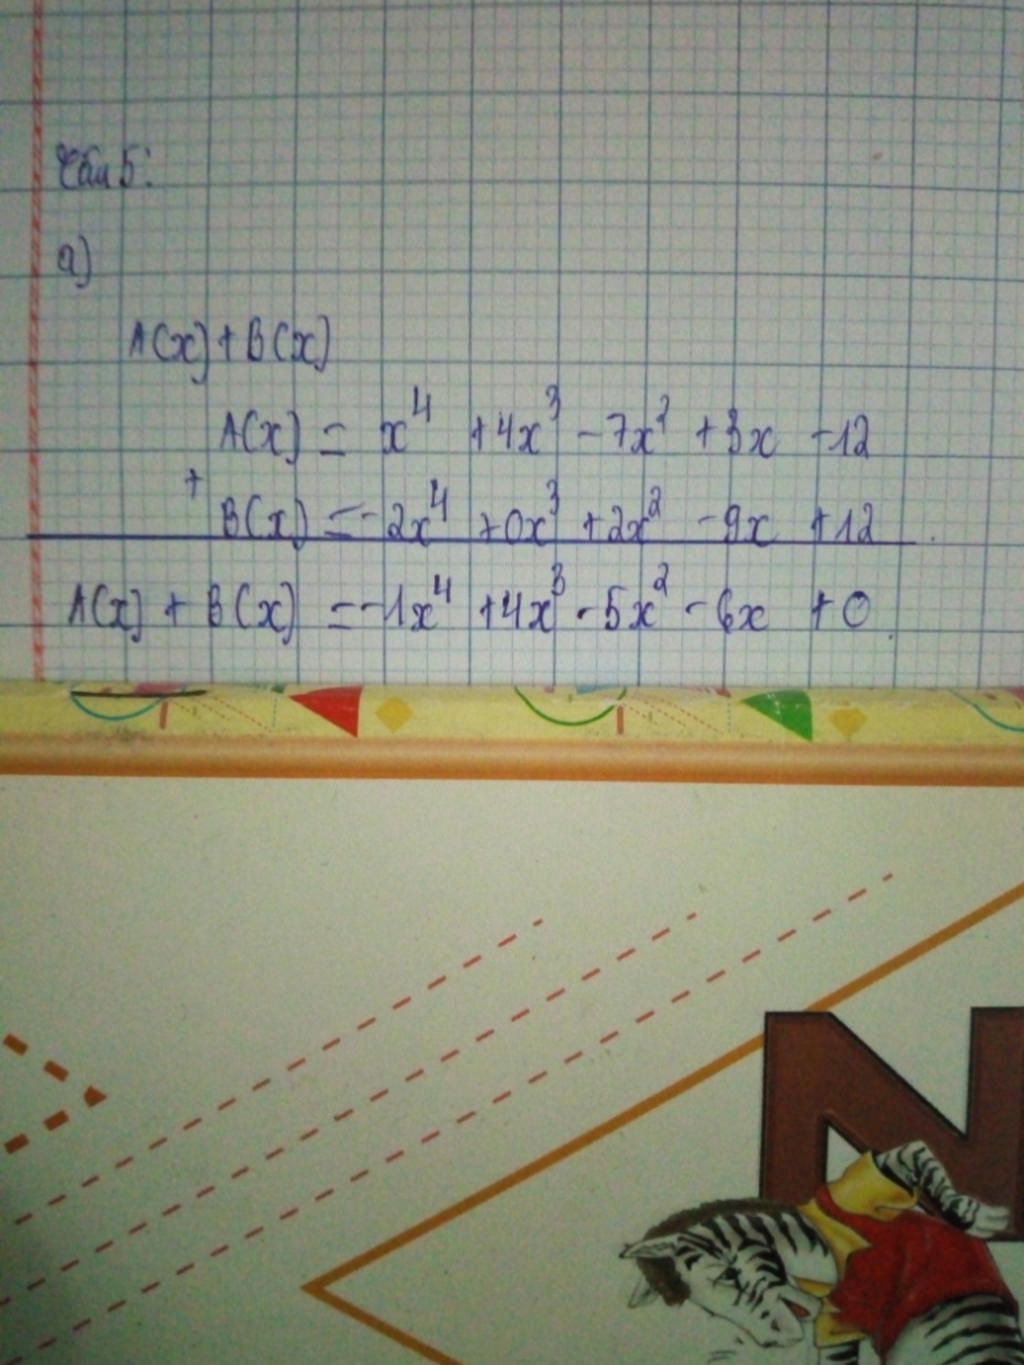 Câu 5:
a)
A(x) + B(x)
A(x) = x⁴ +4x³ -7x² +3x -12
+
B(x) = -2x⁴ +0x³ +2x² -9x +12
A(x) + B(x) = -1x⁴ +4x³ -5x² -6x +0
N